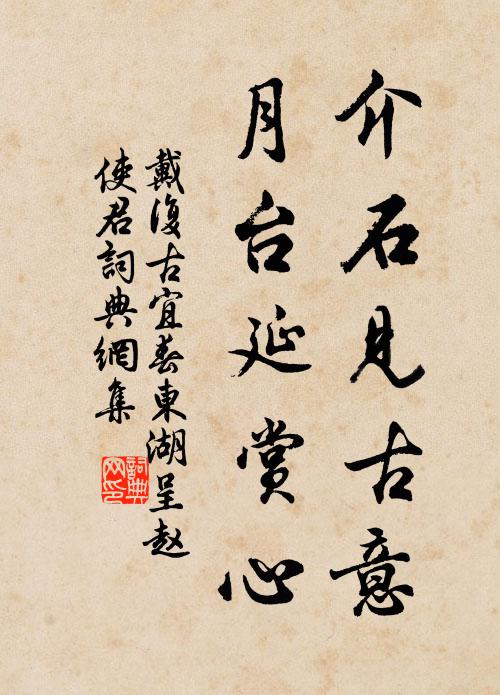 介石見古意
月台延賞心
戴復古宜春東湖呈赵
使君詞典網集
詞典
网印